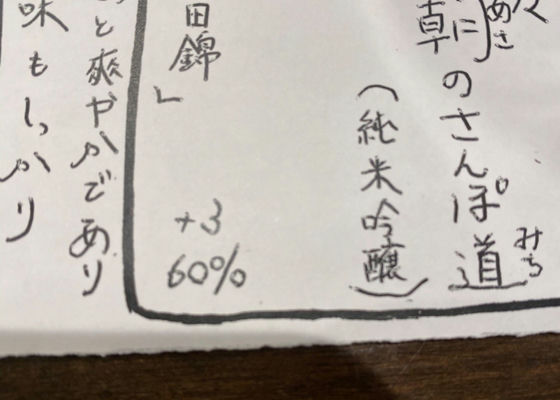 々
朝のさんぽ道
あさ
みち
(純米吟醸)
田錦」
+3
60%
と爽やかであり
味もしっかり